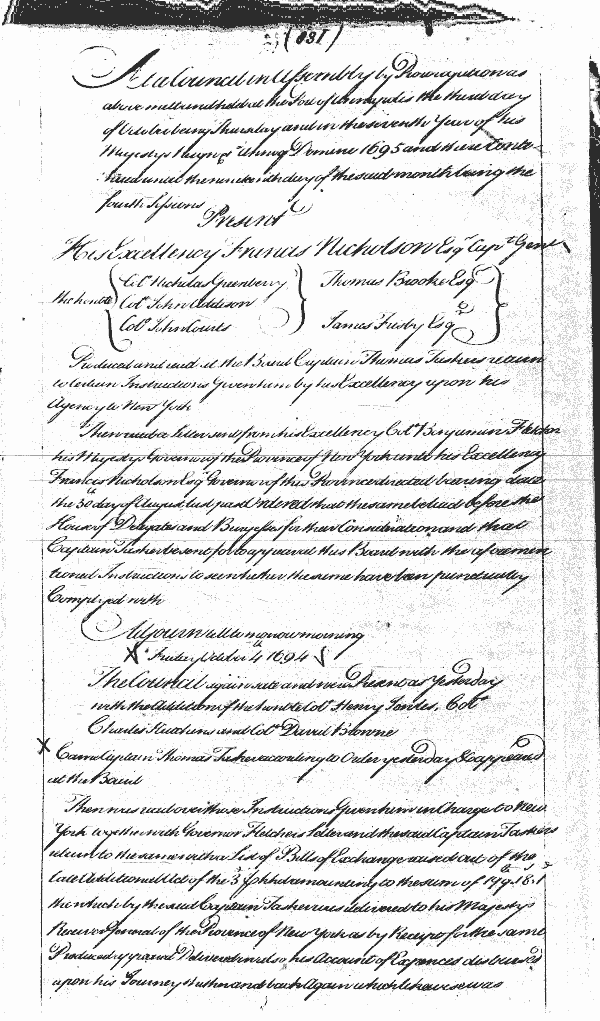 (831)
At a Council in Assembly by Prorogation as
above mett and held at the Port of Annapolis the third day
of October being Thursday and in the seventh Year of his
Majestys Reign &c Annoq Domini 1695 and there Conti-
nued until the nineteenth day of the said month being the
fourth Sessions
Present
His Excellency Francis Nicholson Esqr Capt Genl
the honble
Colo Nicholas Greenberry
Colo John Addison
Colo John Courts
Thomas Brooke Esqr
James Frisby Esqr
Produced and read at the Board Captain Thomas Taskers return
to certain Instructions Given him by his Excellency upon his
Agency to New York
Then read a Letter sent from his Excellency Colo Benjamin Fletcher
his Majestys Governor of the Province of New York unto his Excellency
Francis Nicholson Esqr Governor of this Province directed bearing date
the 30th day of August last past Ordered that the same be laid before the
House of Delegates and Burgesses for their Consideration and that
Captain Tasker be sent for to appear at this Board with the aforemen
tioned Instructions to see whether the same have been punctually
Complyed with
Adjourn'd till to morrow morning
X Friday October 4th 1694
The Council again sate and were Present as Yesterday
with the addition of the honble Colo Henry Jowles, Colo
Charles Hutchins and Colo David Browne
X Came Captain Thomas Tasker according to Order yesterday & appeared
at the Board
Then was read over those Instructions Given him in Charge to New
York together with Governor Fletchers Letter and the said Captain Taskers
return to the same with a List of Bills of Exchange raised out of the
late Additional Act of the 3d hhd amounting to the sum of 149.18.1
the which by the said Captain Tasker was delivered to his Majestys
Receiver General of the Province of New York as by Receipt for the same
Produced appeared Delivered in also his Account of Expences disbursed
upon his Journey thither and back Again which likewise was